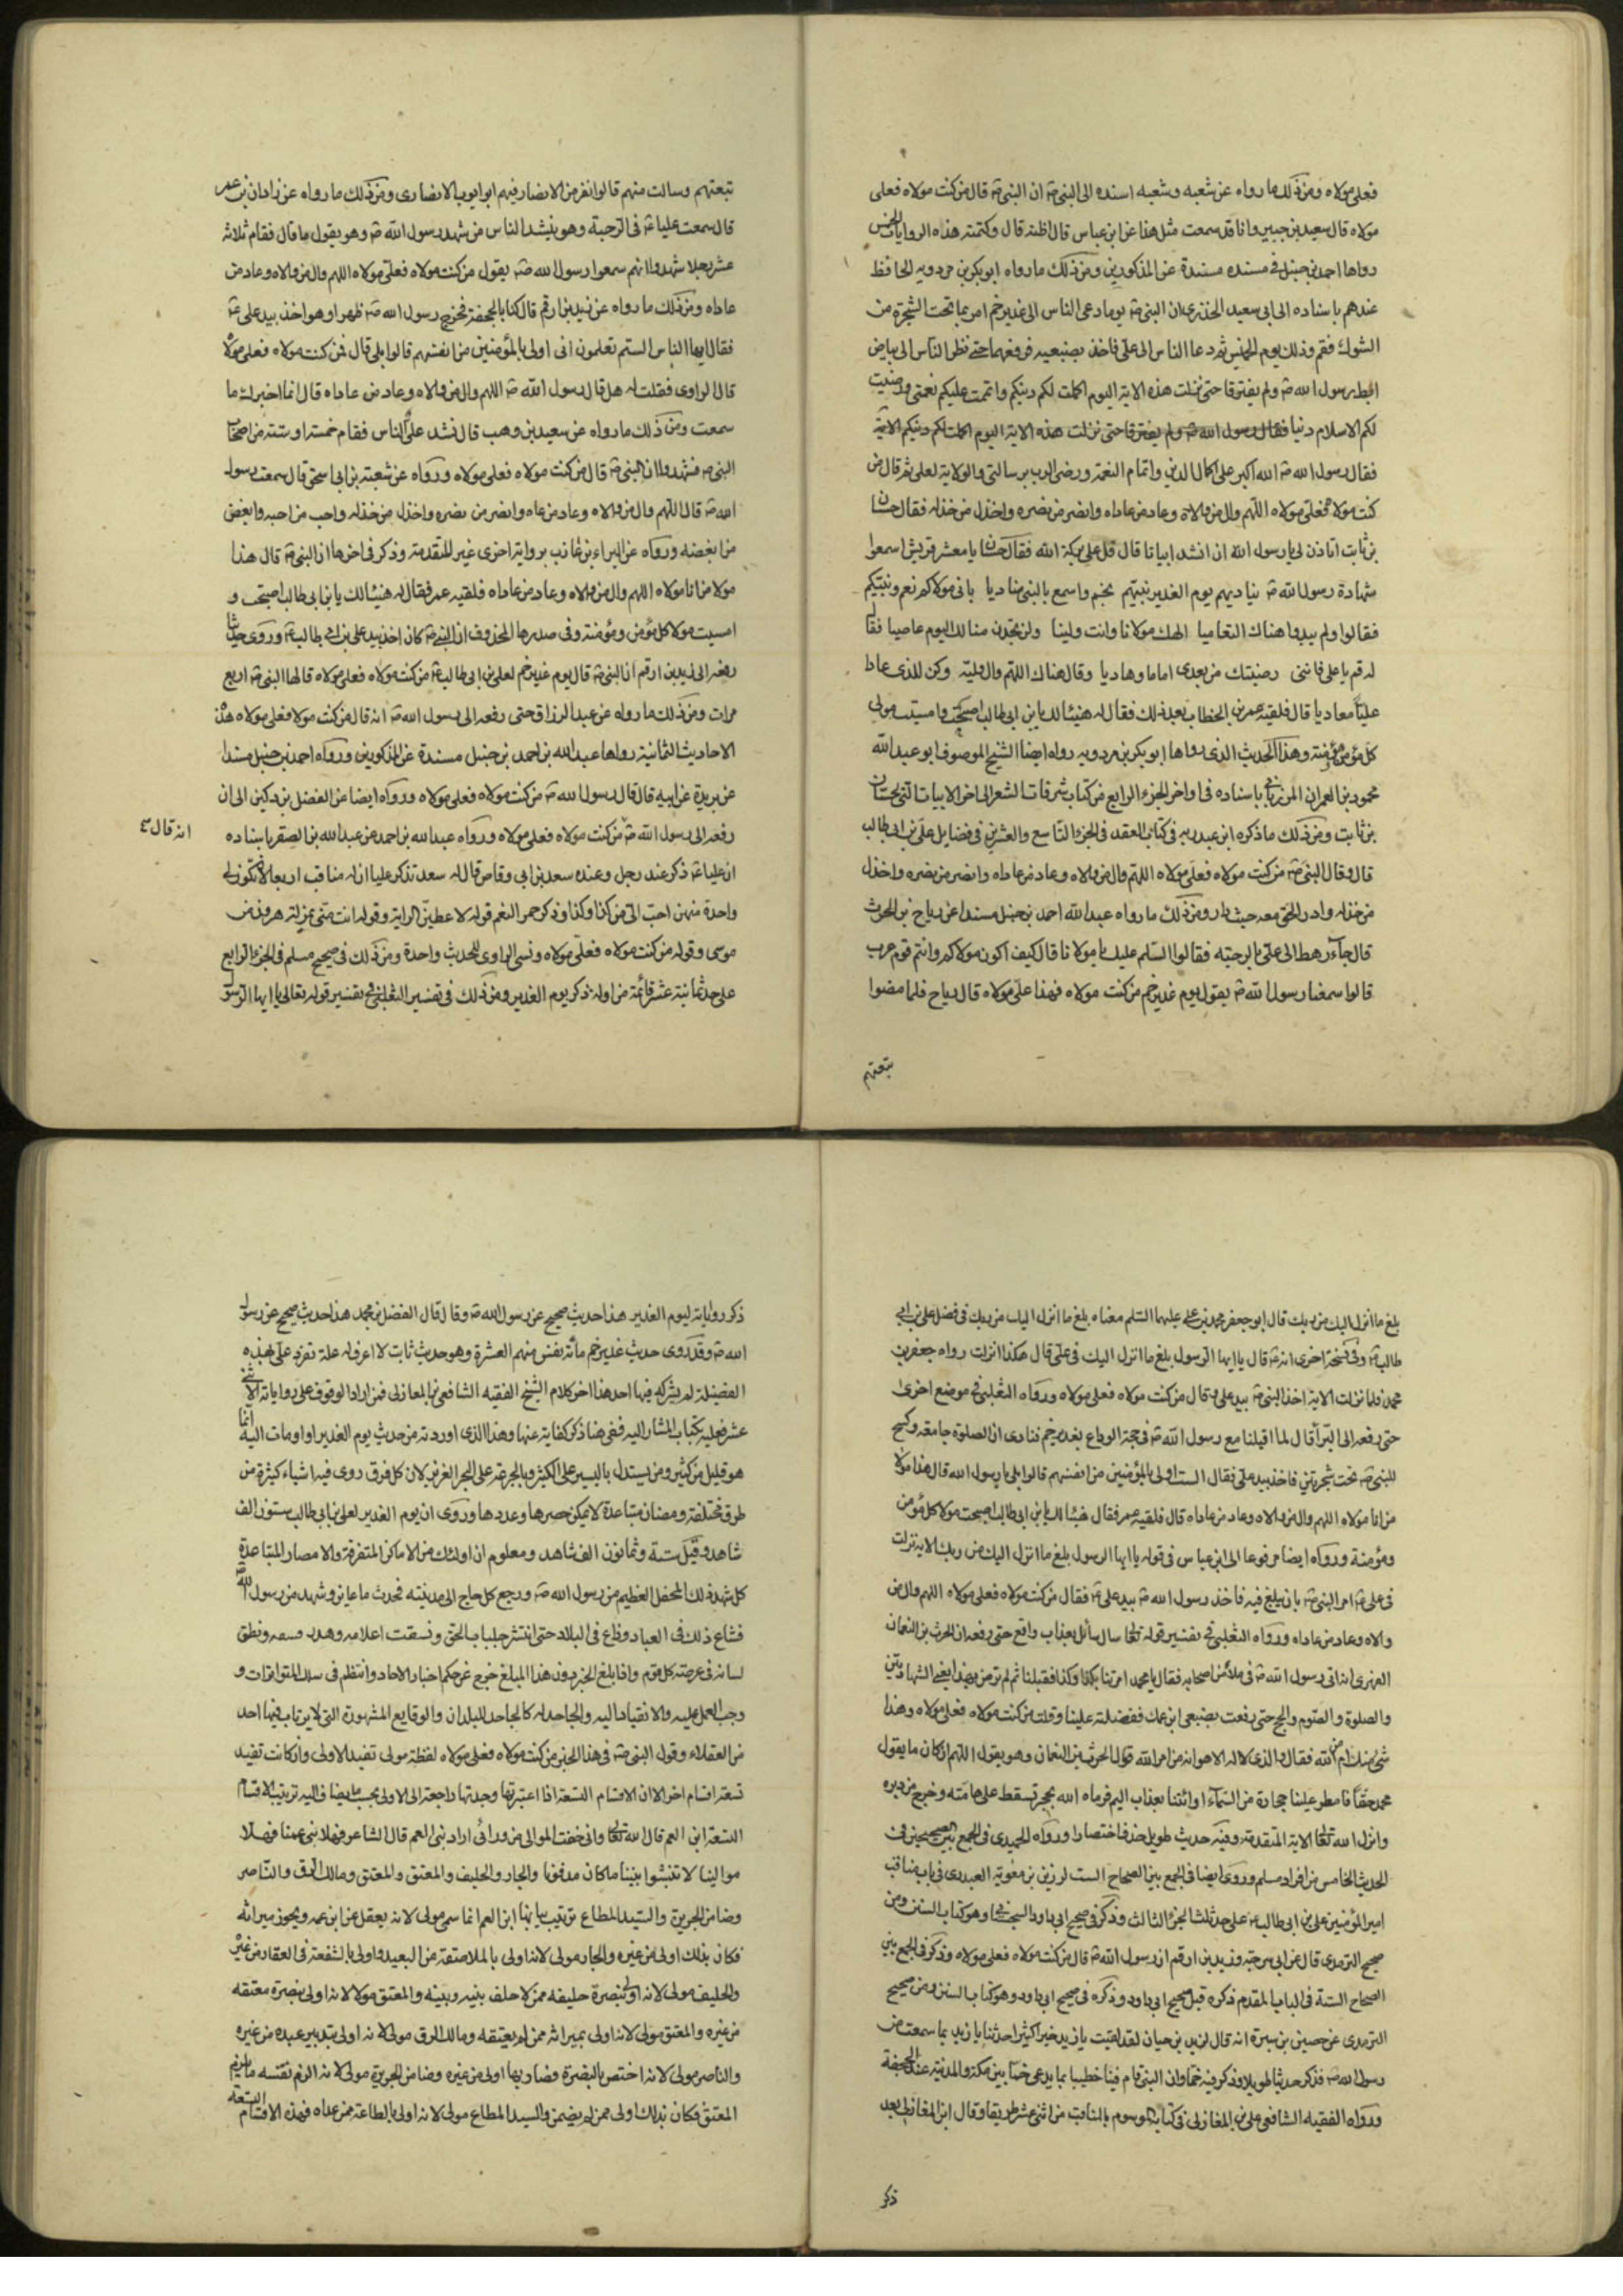 فعلى مولاه ومن ذلك ما رواه عن شعبه وشعبه اسنده الى النبى ص ان النبى ص قال من كنت مولاه فعلى
مولاه قال سعيد بن جبير وانا قد سمعت مثل هذا عن ابن عباس قال اظنه قال وكتمته هذه الروايات الخمس
رواها احمد بن حنبل فى مسنده مسندة عن المذكورين ومن ذلك ما رواه ابو بكر بن مردويه الحافظ
عندهم باسناده الى ابى سعيد الخدرى ان النبى ص يوما دعى الناس الى غدير خم امر بما تحت الشجرة من
الشوك فقم وذلك يوم الخميس ثم دعا الناس الى على فاخذ بضبعيه فرفعهما حتى نظر الناس الى بياض
ابط رسول الله ص ولم يفترقا حتى نزلت هذه الاية اليوم اكملت لكم دينكم واتممت عليكم نعمتى ورضيت
لكم الاسلام دنيا فقال رسول الله ص ولم يفترقا حتى نزلت هذه الاية اليوم اكملت لكم دينكم الاية
فقال رسول الله ص الله اكبر على اكمال الدين واتمام النعمة ورضى الرب برسالتى والولاية لعلى ثم قال من
كنت مولاه فعلى مولاه اللهم وال من والاه وعاد من عاداه وانصر من نصره واخذل من خذله فقال حسان
بن ثابت اتاذن لى يا رسول الله ان انشد ابياتا قال قل على بركة الله فقال حسان يا معشر قريش اسمعوا
شهادة رسول الله ص يناديهم يوم الغدير نبيهم بخم واسمع بالنبى مناديا بانى مولاكم نعم ونبيكم
فقالوا ولم يبدوا هناك التعاميا الهك مولانا وانت ولينا ولن تجدن منا لك اليوم عاصيا فقال
له قم يا على فاننى رضيتك من بعدى اماما وهاديا وقال هناك اللهم وال وليه وكن للذى عادا
عليا معاديا قال فلقيه عمر بن الخطاب بعد ذلك فقال له هنيئا لك يا بن ابى طالب اصبحت وامسيت مولى
كل مؤمن ومؤمنة وهذا الحديث الذى رواها ابو بكر بن مردويه رواه ايضا الشيخ الموصوف ابو عبد الله
محمود بن العمران المرزبانى باسناده فى اواخر الجزء الرابع من كتاب سرقات الشعر الى اخر الابيات التى لحسان
بن ثابت ومن ذلك ما ذكره ابن عبد ربه فى كتاب العقد فى الجزء التاسع والعشرين فى فضايل على بن ابى طالب
قال وقال النبى ص من كنت مولاه فعلى مولاه اللهم وال من والاه وعاد من عاداه وانصر من نصره واخذل
من خذله وادر الحق معه حيث دار ومن ذلك ما رواه عبد الله احمد بن حنبل مسندا عن رياح بن الحرث
قال جاء رهط الى على بالرحبة فقالوا السلم عليك يا مولانا قال كيف اكون مولاكم وانتم قوم عرب
قالوا سمعنا رسول الله ص يقول يوم غدير خم من كنت مولاه فهذا على مولاه قال رياح فلما مضوا
تبعتهم
تبعتهم وسالت منهم قالوا نفر من الانصار فيهم ابو ايوب الانصارى ومن ذلك ما رواه عن زادان بن عمر
قال سمعت عليا ع فى الرحبة وهو ينشد الناس من شهد رسول الله ص وهو يقول ما قال فقام ثلاثة
عشر رجلا شهدوا انهم سمعوا رسول الله ص يقول من كنت مولاه فعلى مولاه اللهم وال من والاه وعاد من
عاداه ومن ذلك ما رواه عن زيد بن ارقم قال كنا بالجحفة فخرج رسول الله ص ظهرا وهو اخذ بيد على ع
فقال ايها الناس الستم تعلمون انى اولى بالمؤمنين من انفسهم قالوا بلى قال فمن كنت مولاه فعلى مولاه
قال الراوى فقلت له هل قال رسول الله ص اللهم وال من والاه وعاد من عاداه قال انما اخبرك ما
سمعت ومن ذلك ما رواه عن سعيد بن وهب قال نشد على الناس فقام خمسة او ستة من اصحاب
النبى ص فشهدوا ان النبى ص قال من كنت مولاه فعلى مولاه ورواه عن شعبة بن ابى اسحق قال سمعت رسول
الله ص قال اللهم وال من والاه وعاد من عاه وانصر من نصره واخذل من خذله واحب من احبه وابغض
من ابغضه ورواه عن البراء بن عازب برواية اخرى غير المتقدمة وذكر فى اخرها ان النبى ص قال هذا
مولا من انا مولاه اللهم وال من والاه وعاد من عاداه فلقيه عمر فقال له هنيئا لك يا بن ابى طالب اصبحت و
امسيت مولا كل مؤمن ومؤمنة وفى صدرها المحذوف ان النبى ص كان اخذ بيد على بن ابى طالب ع وروى حديثا
رفعه الى زيد بن ارقم ان النبى ص قال يوم غدير خم لعلى بن ابى طالب ع من كنت مولاه فعلى مولاه قالها النبى ص اربع
مرات ومن ذلك ما رواه عن عبد الرزاق حتى رفعه الى رسول الله ص انه قال من كنت مولاه فعلى مولاه هذه
الاحاديث الثمانية رواها عبد الله بن احمد بن حنبل مسندة عن المذكورين ورواه احمد بن حنبل مسندا
عن بريدة عن ابيه قال قال رسول الله ص من كنت مولاه فعلى مولاه ورواه ايضا عن الفضل بن دكين الى ان
رفعه الى رسول الله ص من كنت مولاه فعلى مولاه ورواه عبد الله بن احمد عن عبد الله بن الصقر باسناده
انه قال
ان عليا ع ذكر عند رجل وعنده سعد بن ابى وقاص قال له سعد تذكر عليا ان له مناقب اربعا لان تكون لى
واحدة منهن احب الى من كذا وكذا وذكر حمر النعم قوله لاعطين الراية وقوله انت منى بمنزلة هرون من
موسى وقوله من كنت مولاه فعلى مولاه ونسى الراوى للحديث واحدة ومن ذلك فى صحيح مسلم فى الجزء الرابع
على حد ثمانية عشر قائمة من اوله ذكر يوم الغدير ومن ذلك فى تفسير الثعلبى فى تفسير قوله تعالى يا ايها الرسول
بلغ ما انزل اليك من ربك قال ابو جعفر محمد بن على عليهما السلم معناه بلغ ما انزل اليك من ربك فى فضل على بن ابى
طالب ع وفى نسخة اخرى انه ع قال يا ايها الرسول بلغ ما انزل اليك فى على قال هكذا انزلت رواه جعفر بن
محمد فلما نزلت الاية اخذ النبى ص بيد على وقال من كنت مولاه فعلى مولاه ورواه الثعلبى فى موضع اخرى
حتى رفعه الى البرآ قال لما اقبلنا مع رسول الله ص فى حجة الوداع بغدير خم فنادى ان الصلوة جامعة وكسح
للنبى ص تحت شجرتين فاخذ بيد على فقال الست اولى بالمؤمنين من انفسهم قالوا بلى يا رسول الله قال هذا مولا
من انا مولاه اللهم وال من والاه وعاد من عاداه قال فلقيه عمر فقال هنيئا لك يا بن ابى طالب اصبحت مولا كل مؤمن
ومؤمنة ورواه ايضا مرفوعا الى ابن عباس فى قوله يا ايها الرسول بلغ ما انزل اليك من ربك الاية نزلت
فى على ع امر النبى ص بان يبلغ فيه فاخذ رسول الله ص بيد على ع فقال من كنت مولاه فعلى مولاه اللهم وال من
والاه وعاد من عاداه ورواه الثعلبى فى تفسير قوله تعالى سال سائل بعذاب واقع حتى رفعه ان الحرث بن النعمان
الفهرى انه اتى رسول الله ص فى ملأ من اصحابه فقال يا محمد امرتنا بكذا وكذا فقبلنا ثم لم ترض بهذا يعنى الشهادتين
والصلوة والصوم والحج حتى رفعت بضبعى ابن عمك ففضلته علينا وقلت من كنت مولاه فعلى مولاه وهذا
شئ منك ام من الله فقال والذى لا اله الا هو انه من امر الله فولى الحرث بن النعمان وهو يقول اللهم ان كان ما يقول
محمد حقا فامطر علينا حجارة من السماء او ائتنا بعذاب اليم فرماه الله بحجر فسقط على هامته وخرج من دبره
وانزل الله تعالى الاية المتقدمة وفيه حديث طويل حذفه اختصارا ورواه الحميدى فى الجمع بين الصحيحين فى
الحديث الخامس من افراد مسلم وروى ايضا فى الجمع بين الصحاح الست لرزين بن معوية العبدرى فى باب مناقب
امير المؤمنين على بن ابى طالب ع على حد ثلث الجزء الثالث وذكر فى صحيح ابى داود السجستانى وهو كتاب السنن ومن
صحيح الترمذى قال عن ابى سرحة وزيد بن ارقم ان رسول الله ص قال من كنت مولاه فعلى مولاه وذكر فى الجمع بين
الصحاح الستة فى الباب المقدم ذكره قبل صحيح ابى داود وذكره فى صحيح ابى داود وهو كتاب السنن ومن صحيح
الترمذى عن حصين بن سبرة انه قال لزيد بن حيان لقد لقيت يا زيد خيرا كثيرا حدثنا يا زيد بما سمعت من
رسول الله ص فذكر حديثا طويلا وذكر فيه خما وان النبى قام فينا خطيبا بما يدعى خما بين مكة والمدينة عند الجحفة
ورواه الفقيه الشافعى على بن المغازلى فى كتابه الموسوم بالمناقب من اثنى عشر طريقا وقال ابن المغازلى بعد
ذكر
ذكر رواياته ليوم الغدير هذا حديث صحيح عن رسول الله ص وقال قال الفضل بن محمد هذا حديث صحيح عن رسول
الله ص وقد روى حديث غدير خم مائة نفس منهم العشرة وهو حديث ثابت لا اعرف له علة تفرد على بهذه
الفضيلة لم يشركه فيها احد هذا اخر كلام الشيخ الفقيه الشافعى بن المغازلى فمن اراد الوقوف على رواياته الاثنى
عشر فعليه بكتابه المشار اليه ففى هذا ذكر كفاية عنها وهذا الذى اوردته من حديث يوم الغدير او اومات اليه انما
هو قليل من كثير ومن يستدل باليسير على الكثير وبالجرعة على البحر الغزير لان كل فرق روى فيه اشياء كثيرة من
طرق مختلفة ومضان متباعدة لا يمكن حصرها وعددها وروى ان يوم الغدير لعلى بن ابى طالب ستون الف
شاهد وقيل ستة وثمانون الف شاهد ومعلوم ان اولئك من الاماكن المتفرقة والامصار المتباعدة
كل شهد ذلك المحفل العظيم من رسول الله ص ورجع كل حاج الى مدينته فحدث ما عاين وشهد من رسول الله
فشاع ذلك فى العباد وذاع فى البلاد حتى انتشر جلباب الحق ونسقت اعلامه وهدر وسمه ونطق
لسانه فى عرصة كل قوم واذا بلغ الخبر دون هذا المبلغ خرج عن حكم اخبار الاحاد وانتظم فى سلك المتواترات و
وجب العمل عليه والانقياد اليه والجاحد له كالجاحد للبلدان والوقايع المشهورة التى لا يرتاب فيها احد
من العقلاء وقول النبى ص فى هذا الخبر من كنت مولاه فعلى مولاه لفظة مولى تفيد الاولى وان كانت تفيد
تسعة اقسام اخر الا ان الاقسام التسعة اذا اعتبرتها وجدتها راجعة الى الاولى بحسب ما يضاف اليه ترتيب الاقسام
التسعة ابن العم قال الله تعالى وانى خفت الموالى من ورائى اراد بنى العم قال الشاعر مهلا بنى عمنا مهلا
موالينا لا تنبشوا بيننا ما كان مدفونا والجار والحليف والمعتق والمعتق ومالك الرق والناصر
وضامن الجريرة والسيد المطاع ترتيب بيانها ابن العم انما سمى مولى لانه يعقل عن ابن عمه ويحوز ميراثه
فكان بذلك اولى من غيره والجار مولى لانه اولى بالملاصقة من البعيد واولى بالشفعة فى العقار من غيره
والحليف مولى لانه اولى بنصرة حليفه ممن لا حلف بينه وبينه والمعتق مولا لانه اولى بنصرة معتقه
من غيره والمعتق مولى لانه اولى بميراثه ممن لم يعتقه ومالك الرق مولى لانه اولى بتدبير عبده من غيره
والناصر مولى لانه اختص بالنصرة فصار بها اولى من غيره وضامن الجريرة مولى لانه الزم نفسه ما يلزم
المعتق فكان بذلك اولى ممن لم يضمن والسيد المطاع مولى لانه اولى بالطاعة ممن عداه فهذه الاقسام التسعة